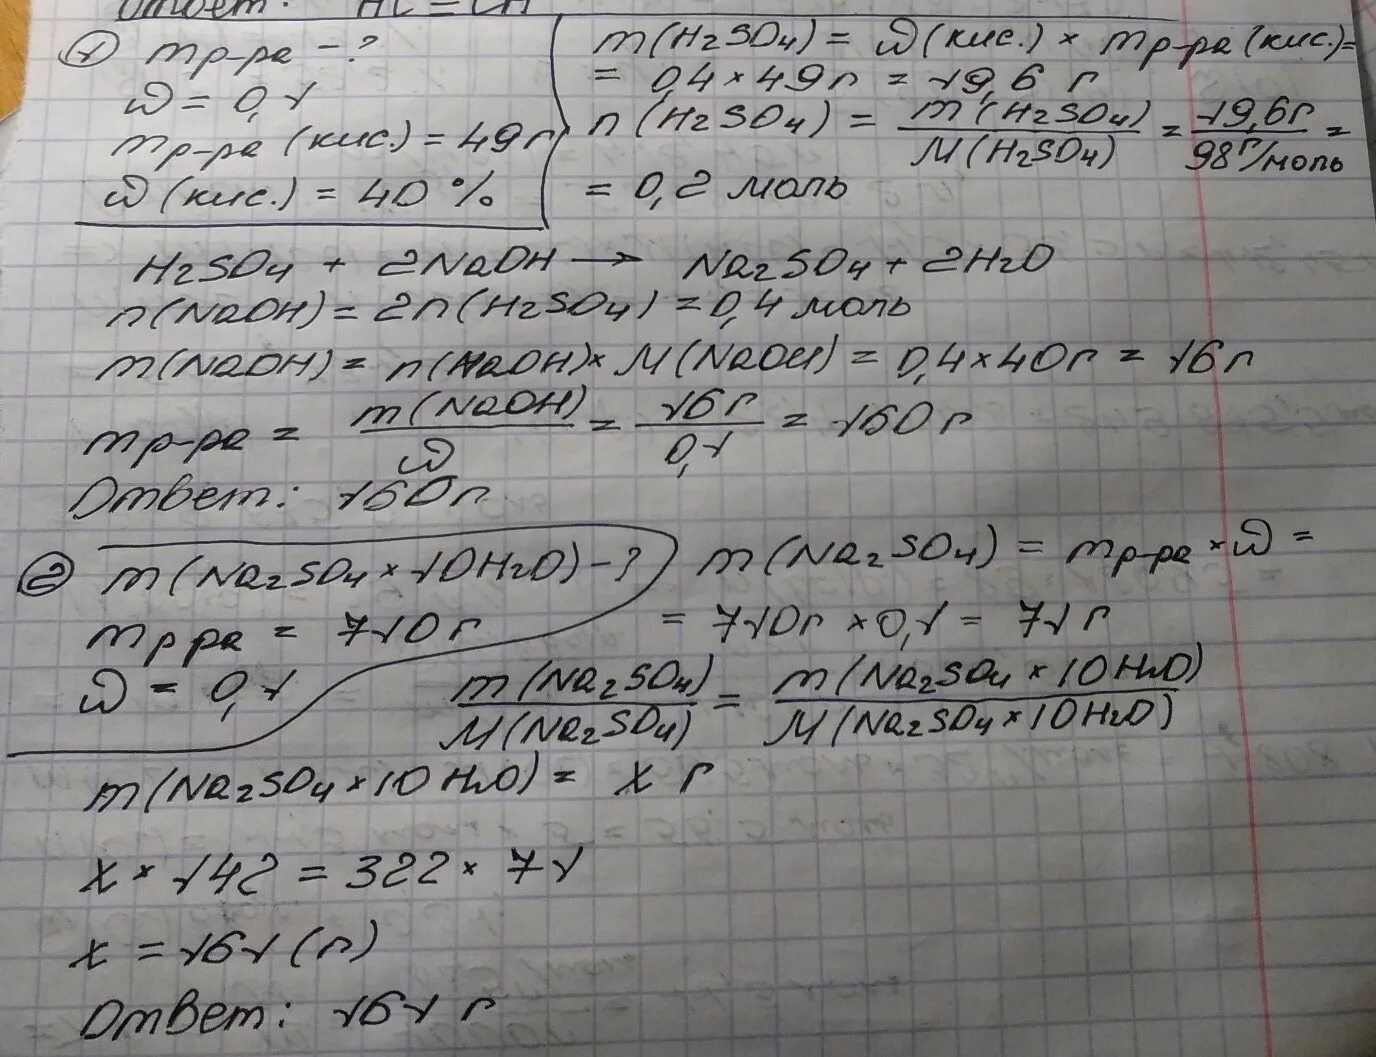 Ответ: HC≡CH
① mр-ра - ?
ω = 0,1
mр-ра (кис.) = 49г
ω (кис.) = 40 %
m(H₂SO₄) = ω (кис.) × mр-ра (кис.) =
= 0,4 × 49г = 19,6 г
n (H₂SO₄) = m (H₂SO₄) / M (H₂SO₄) = 19,6г / 98 г/моль =
= 0,2 моль
H₂SO₄ + 2NaOH → Na₂SO₄ + 2H₂O
n(NaOH) = 2n(H₂SO₄) = 0,4 моль
m(NaOH) = n(NaOH) × M(NaOH) = 0,4 × 40г = 16г
mр-ра = m(NaOH) / ω = 16г / 0,1 = 160г
Ответ: 160г
② m(Na₂SO₄ × 10H₂O) - ?
mр-ра = 710г
ω = 0,1
m(Na₂SO₄) = mр-ра × ω =
= 710г × 0,1 = 71 г
m(Na₂SO₄) / M(Na₂SO₄) = m(Na₂SO₄ × 10H₂O) / M(Na₂SO₄ × 10H₂O)
m(Na₂SO₄ × 10H₂O) = x г
x × 142 = 322 × 71
x = 161 (г)
Ответ: 161 г